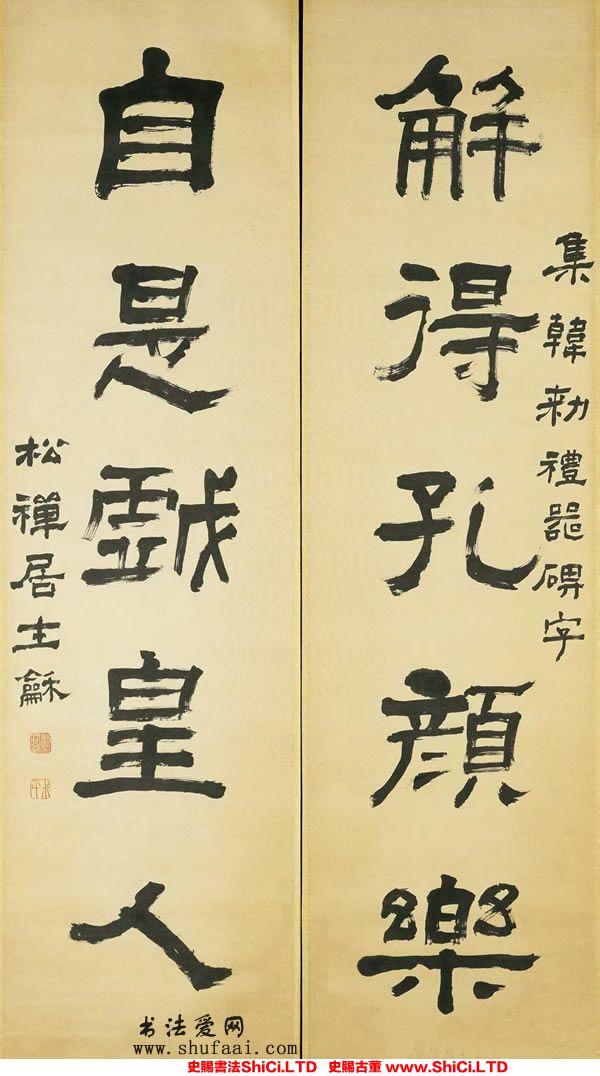 解得孔顏樂
集韓勑禮器碑字
自是戲皇人
松禪居士龢
书法爱网
www.shufaai.com
史賜書法ShiCi.LTD 史賜古董 www.ShiCi.LTD